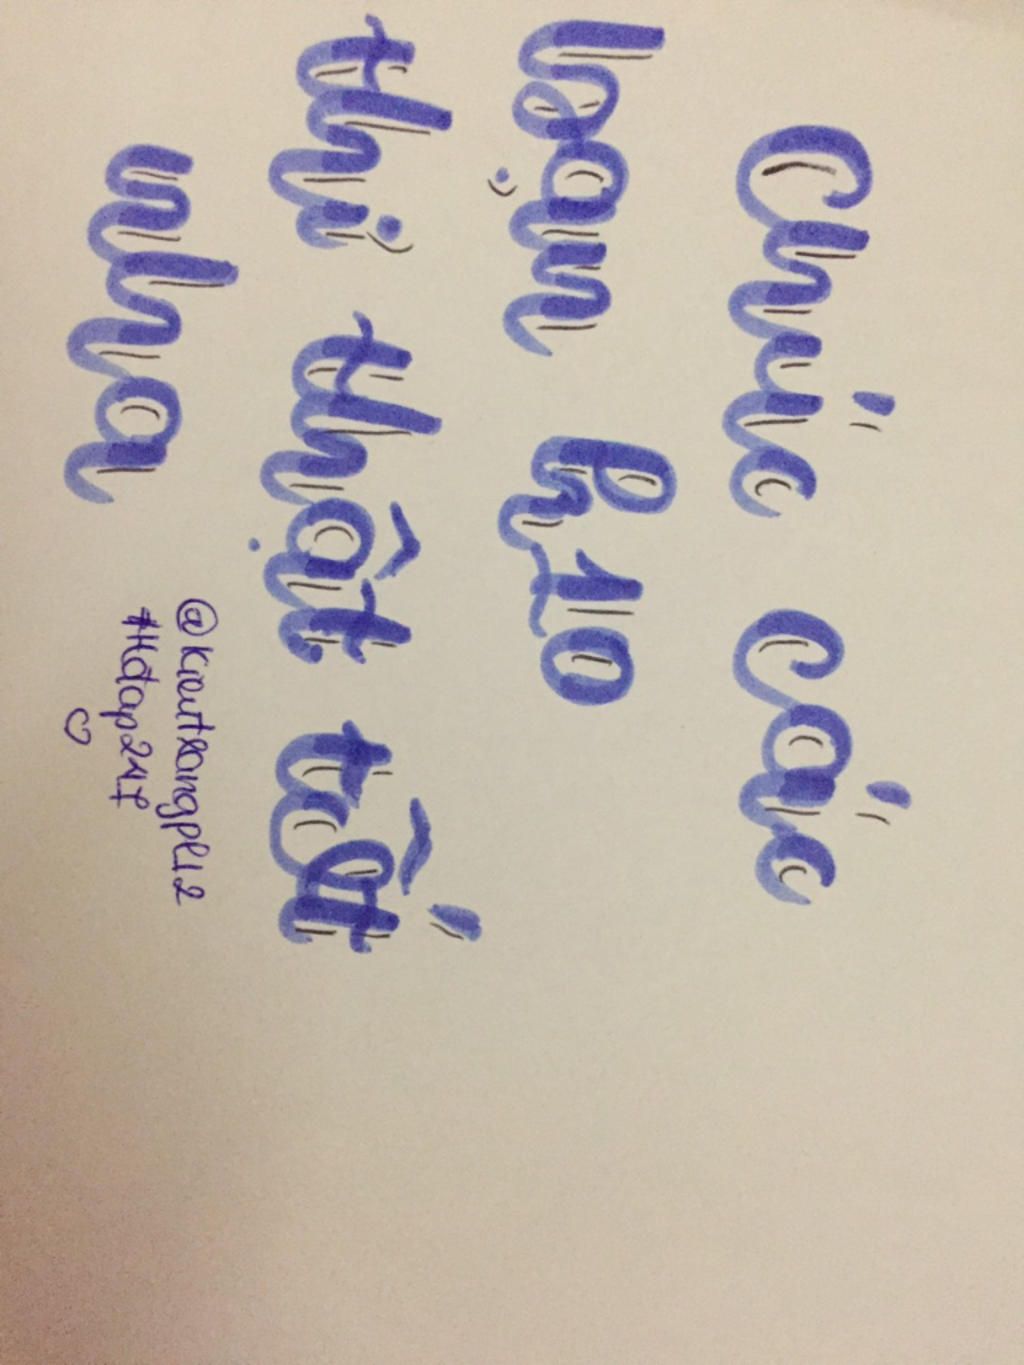 Chúc các
bạn 2k10
thi thật tốt
nha
@kieutrangplu2
#Hdap247